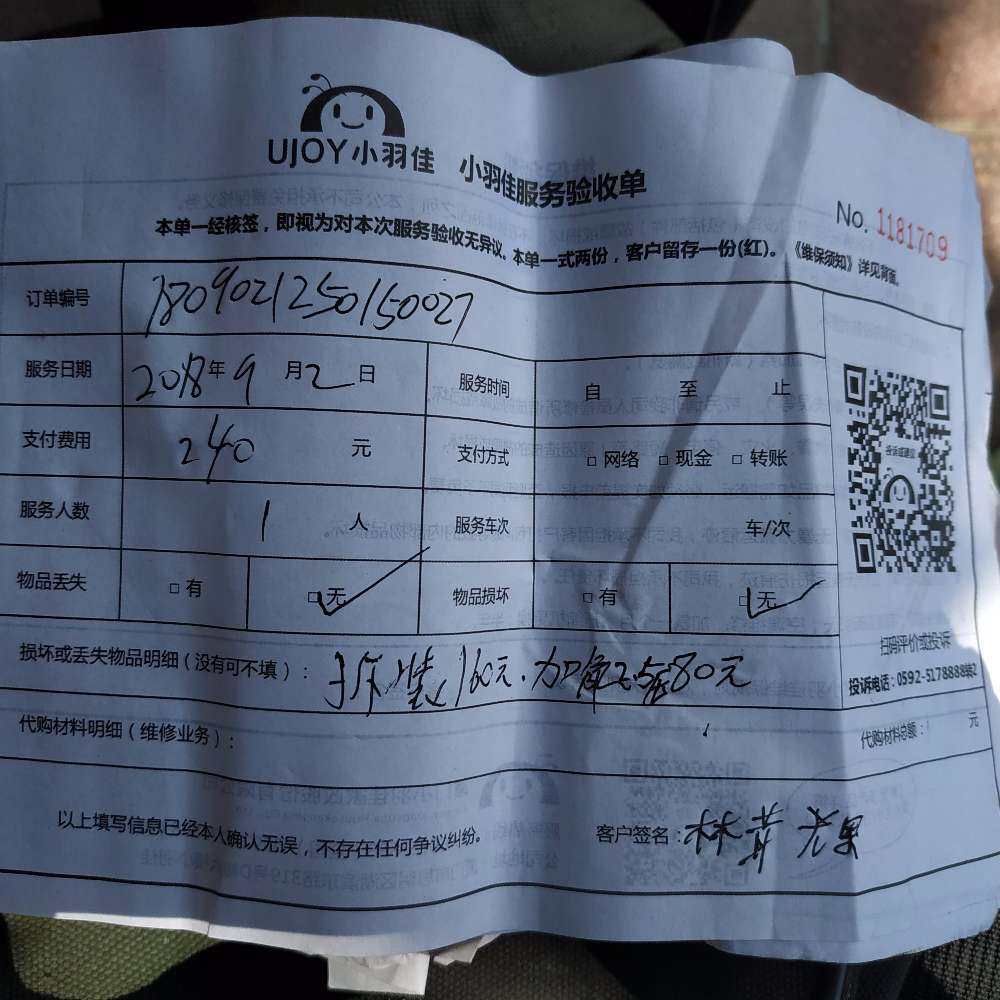 UJOY小羽佳 小羽佳服务验收单
No. 1181709
本单一经核签，即视为对本次服务验收无异议。本单一式两份，客户留存一份(红)。《维保须知》详见背面。
订单编号 1809021250150027
服务日期 2018年9月2日 服务时间 自 至 止
支付费用 240 元 支付方式 □网络 □现金 □转账
投诉或建议
服务人数 1 人 服务车次 车/次
物品丢失 □有 □无 物品损坏 □有 □无
扫码评价或投诉
损坏或丢失物品明细（没有可不填）： 拆装160元.加 80元
投诉电话：0592-5178888转2
代购材料明细（维修业务）： 代购材料总额： 元
以上填写信息已经本人确认无误，不存在任何争议纠纷。 客户签名：林